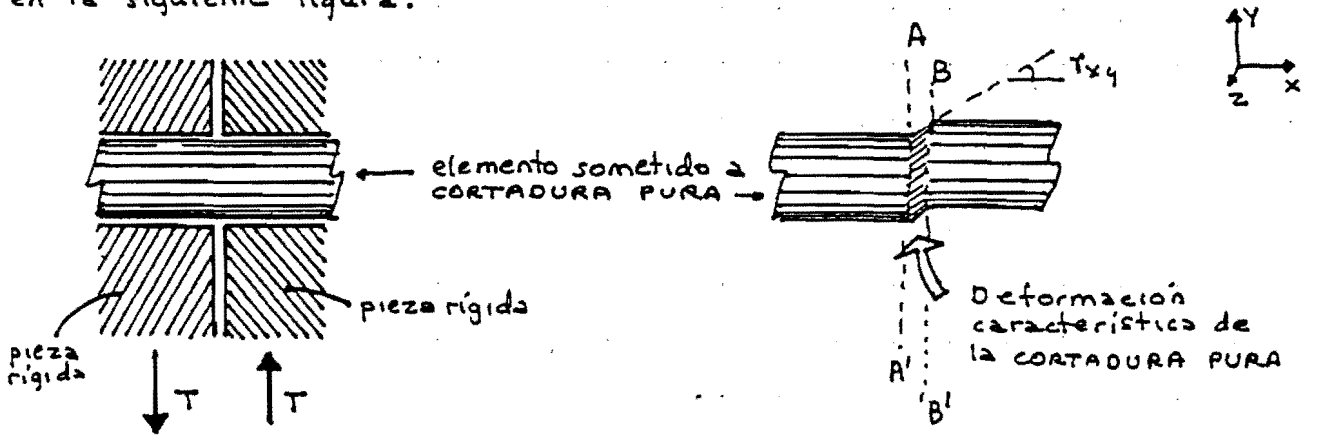 en la siguiente figura:
A
B
γxy
Y
X
Z
elemento sometido a
CORTADURA PURA
pieza rígida
pieza
rígida
T
T
Deformación
característica de
la CORTADURA PURA
A'
B'